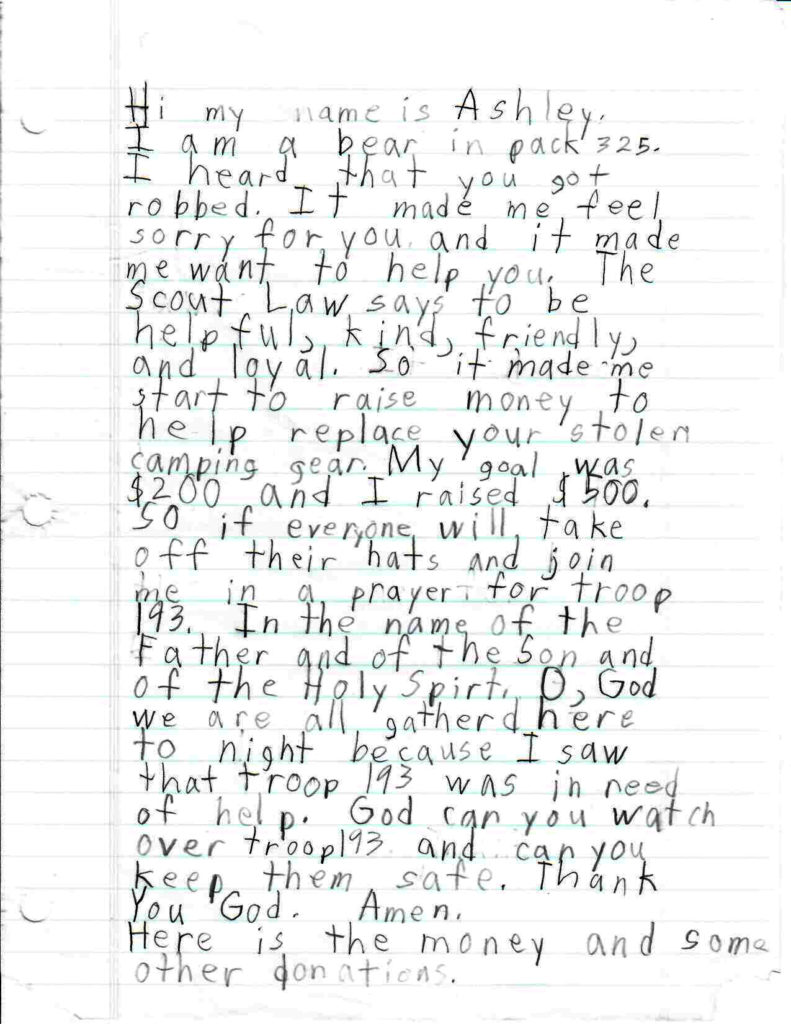 Hi my name is Ashley.
I am a bear in pack 325.
I heard that you got
robbed. It made me feel
sorry for you and it made
me want to help you. The
Scout Law says to be
helpful, kind, friendly,
and loyal. So it made me
start to raise money to
help replace your stolen
camping gear. My goal was
$200 and I raised $500.
So if everyone will take
off their hats and join
me in a prayer for troop
193. In the name of the
Father and of the Son and
of the Holy Spirt. O, God
we are all gatherd here
to night because I saw
that troop 193 was in need
of help. God can you watch
over troop193 and can you
keep them safe. Thank
You God. Amen.
Here is the money and some
other donations.